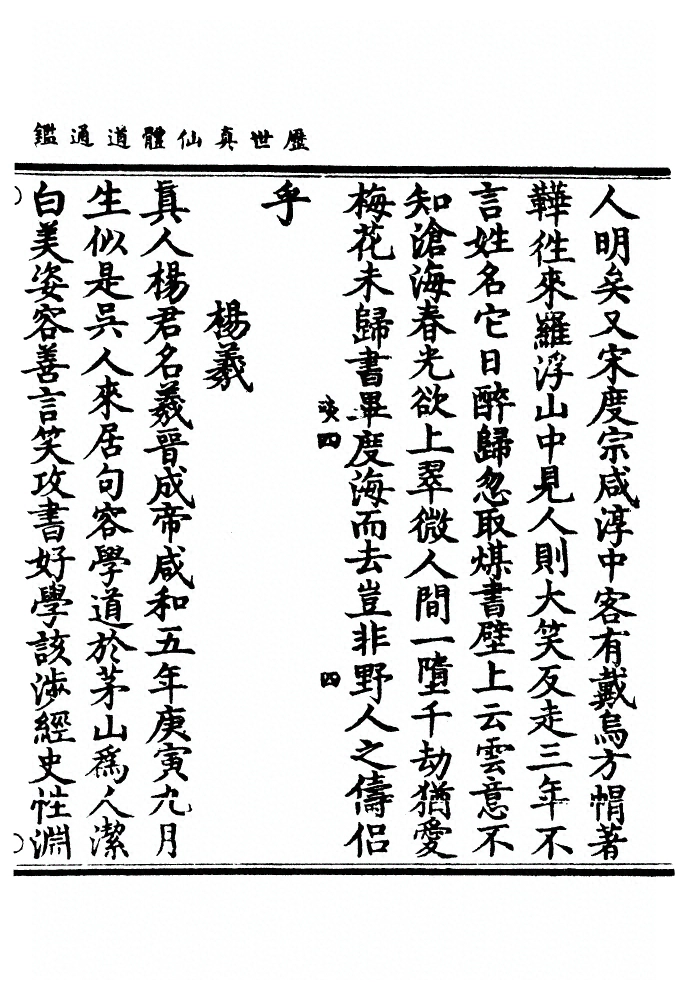 歷世真仙體道通鑑
人明矣又宋度宗咸淳中客有戴烏方帽著
鞾徃來羅浮山中見人則大笑反走三年不
言姓名它日醉歸忽取煤書壁上云雲意不
知滄海春光欲上翠微人間一墮千劫猶愛
梅花未歸書畢度海而去豈非野人之儔侣
四
四
乎
楊羲
真人楊君名羲晉成帝咸和五年庚寅九月
生似是吳人來居句容學道於茅山爲人潔
白美姿容善言笑攻書好學該涉經史性淵